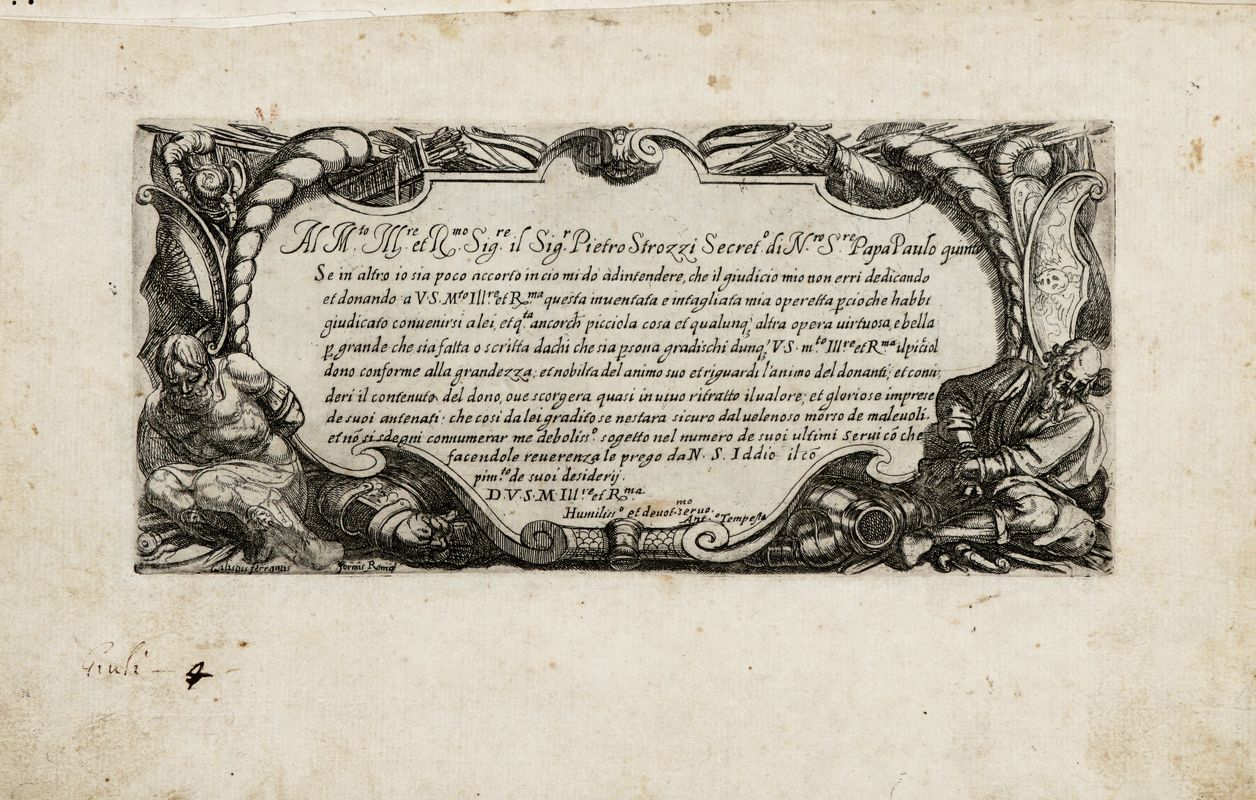 Al M.to Ill.re et R.mo Sig.re il Sig.r Pietro Strozzi Secret.o di N.ro S.re Papa Paulo quinto
Se in altro io sia poco accorto in cio mi do adintendere, che il giudicio mio non erri dedicando
et donando a V S. M.to Ill.re et R.ma questa inuentata e intagliata mia operetta pcioche habbi
giudicato conuenirsi a lei, et q.ta ancorch picciola cosa et qualunq; altra opera uirtuosa, e bella
p grande che sia fatta o scritta dachi che sia psona gradischi dunq; V S. m.to Ill.re et R.ma il piciol
dono conforme alla grandezza, et nobilta del animo suo et riguardi l'animo del donante, et consi:
deri il contenuto del dono, oue scorgera quasi in uiuo ritratto il ualore, et gloriose imprese
de suoi antenati; che cosi da lei gradito se nestara sicuro dal uelenoso morso de maleuoli.
et nõ si sdegni connumerar me debolis.o sogetto nel numero de suoi ultimi serui cõ che
facendole reuerenza le prego da N. S. Iddio il cõ
pim.to de suoi desiderij.
D. V. S. M. Ill.re et R.ma
Humiliss.o et deuot.mo seruo.
Ant.o Tempesta
formis Romę
Giuli — 4 -